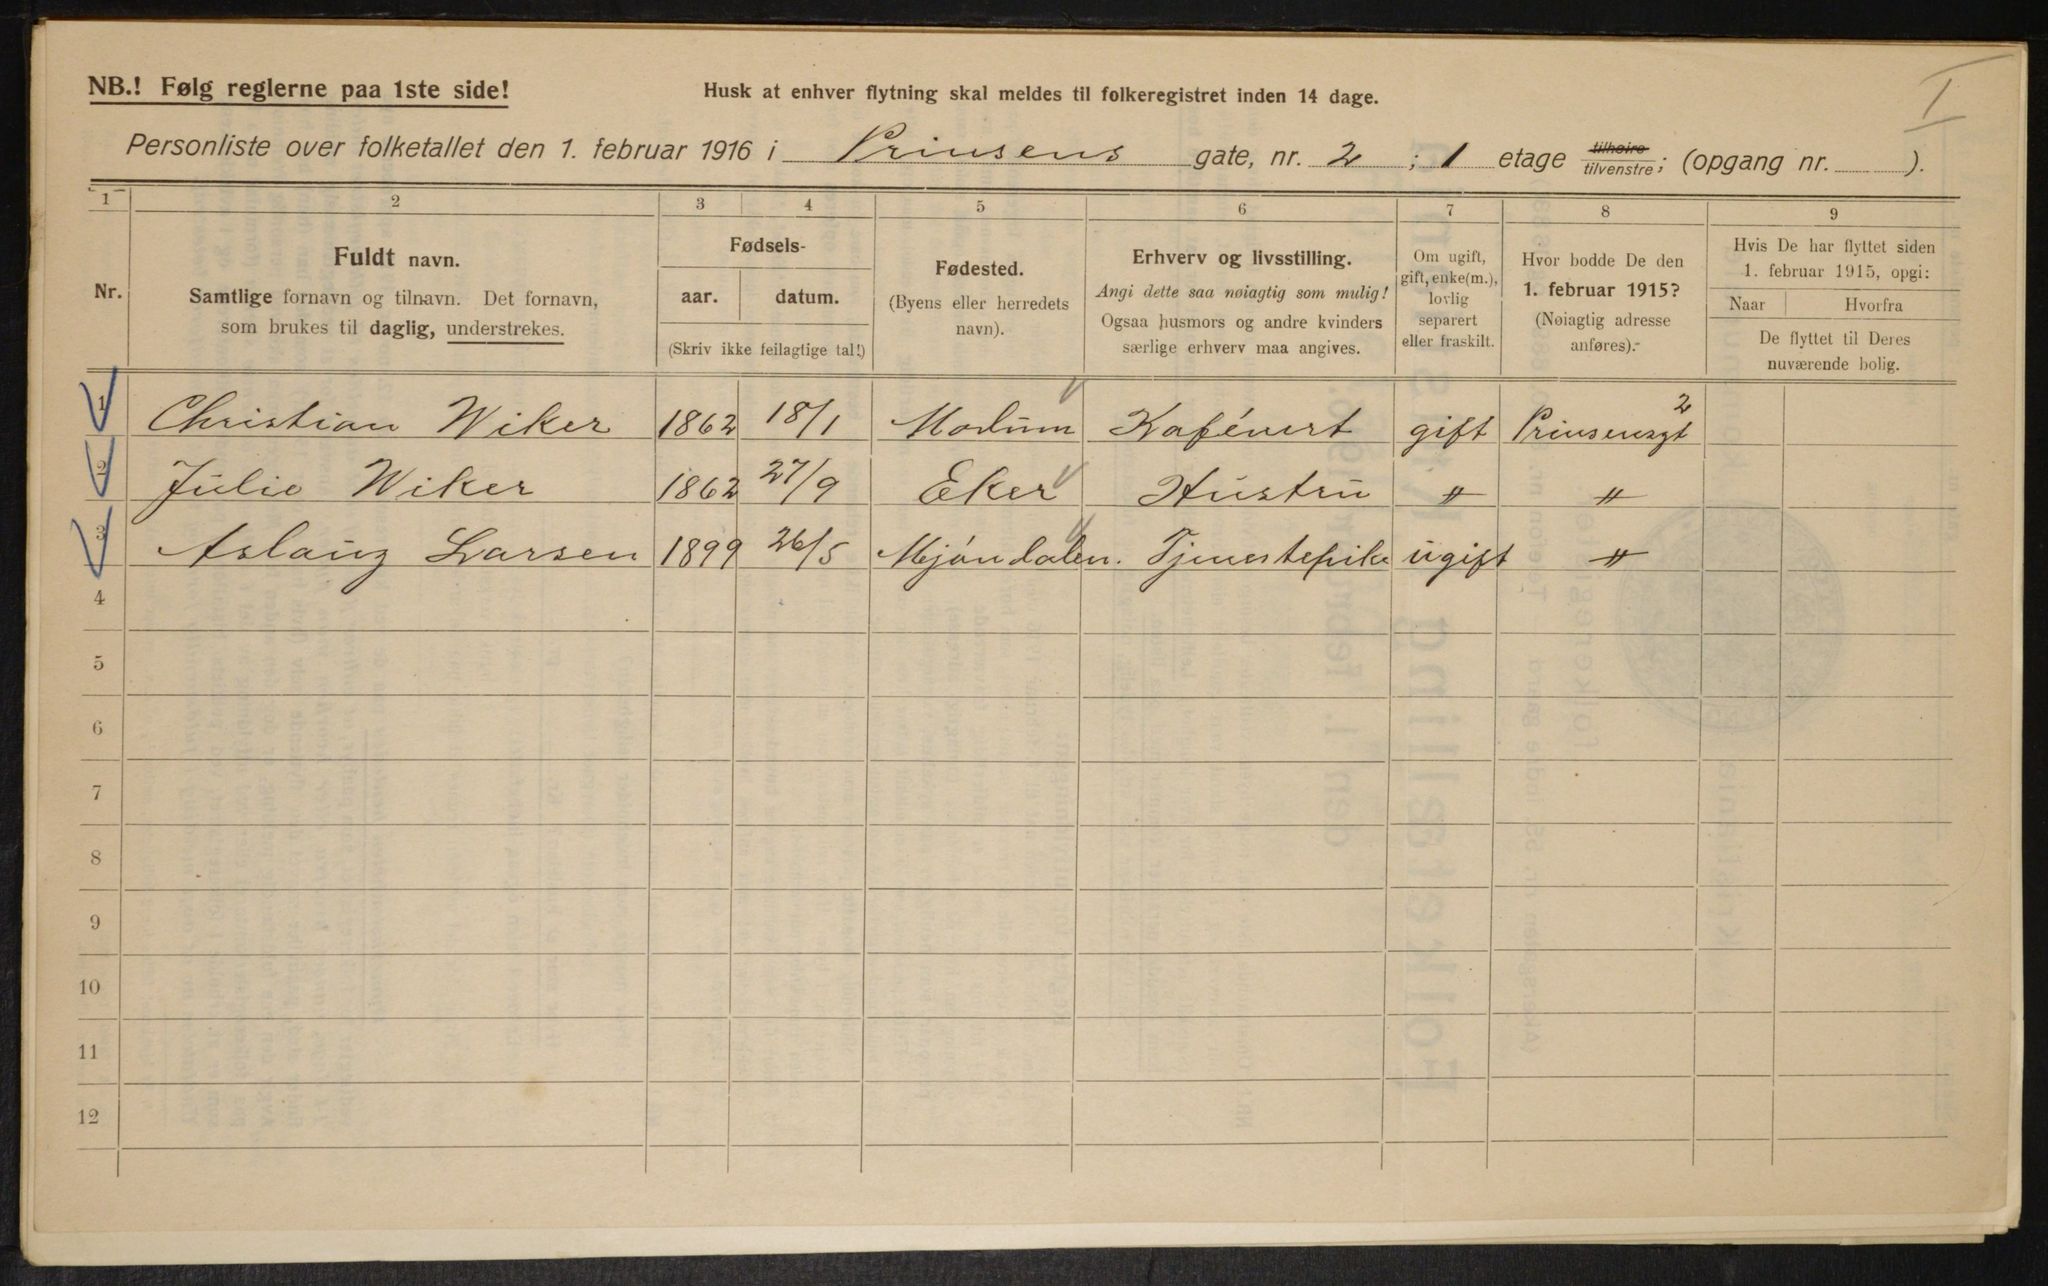 I
NB.! Følg reglerne paa 1ste side!
Husk at enhver flytning skal meldes til folkeregistret inden 14 dage.
Personliste over folketallet den 1. februar 1916 i Prinsens gate, nr. 2 ; 1 etage tilhøire tilvenstre; (opgang nr. ).
1 2 3 4 5 6 7 8 9
Nr.
Fuldt navn.
Samtlige fornavn og tilnavn. Det fornavn,
som brukes til daglig, understrekes.
Fødsels-
aar. datum.
(Skriv ikke feilagtige tal!)
Fødested.
(Byens eller herredets
navn).
Erhverv og livsstilling.
Angi dette saa nøiagtig som mulig!
Ogsaa husmors og andre kvinders
særlige erhverv maa angives.
Om ugift,
gift, enke(m.),
lovlig
separert
eller fraskilt.
Hvor bodde De den
1. februar 1915?
(Nøiagtig adresse
anføres).
Hvis De har flyttet siden
1. februar 1915, opgi:
Naar Hvorfra
De flyttet til Deres
nuværende bolig.
1 Christian Wiker 1862 18/1 Modum Kafévert gift Prinsensgt 2
2 Julie Wiker 1862 27/9 Eker Hustru " "
3 Aslaug Larsen 1899 26/5 Mjøndalen. Tjenestepike ugift "
4
5
6
7
8
9
10
11
12